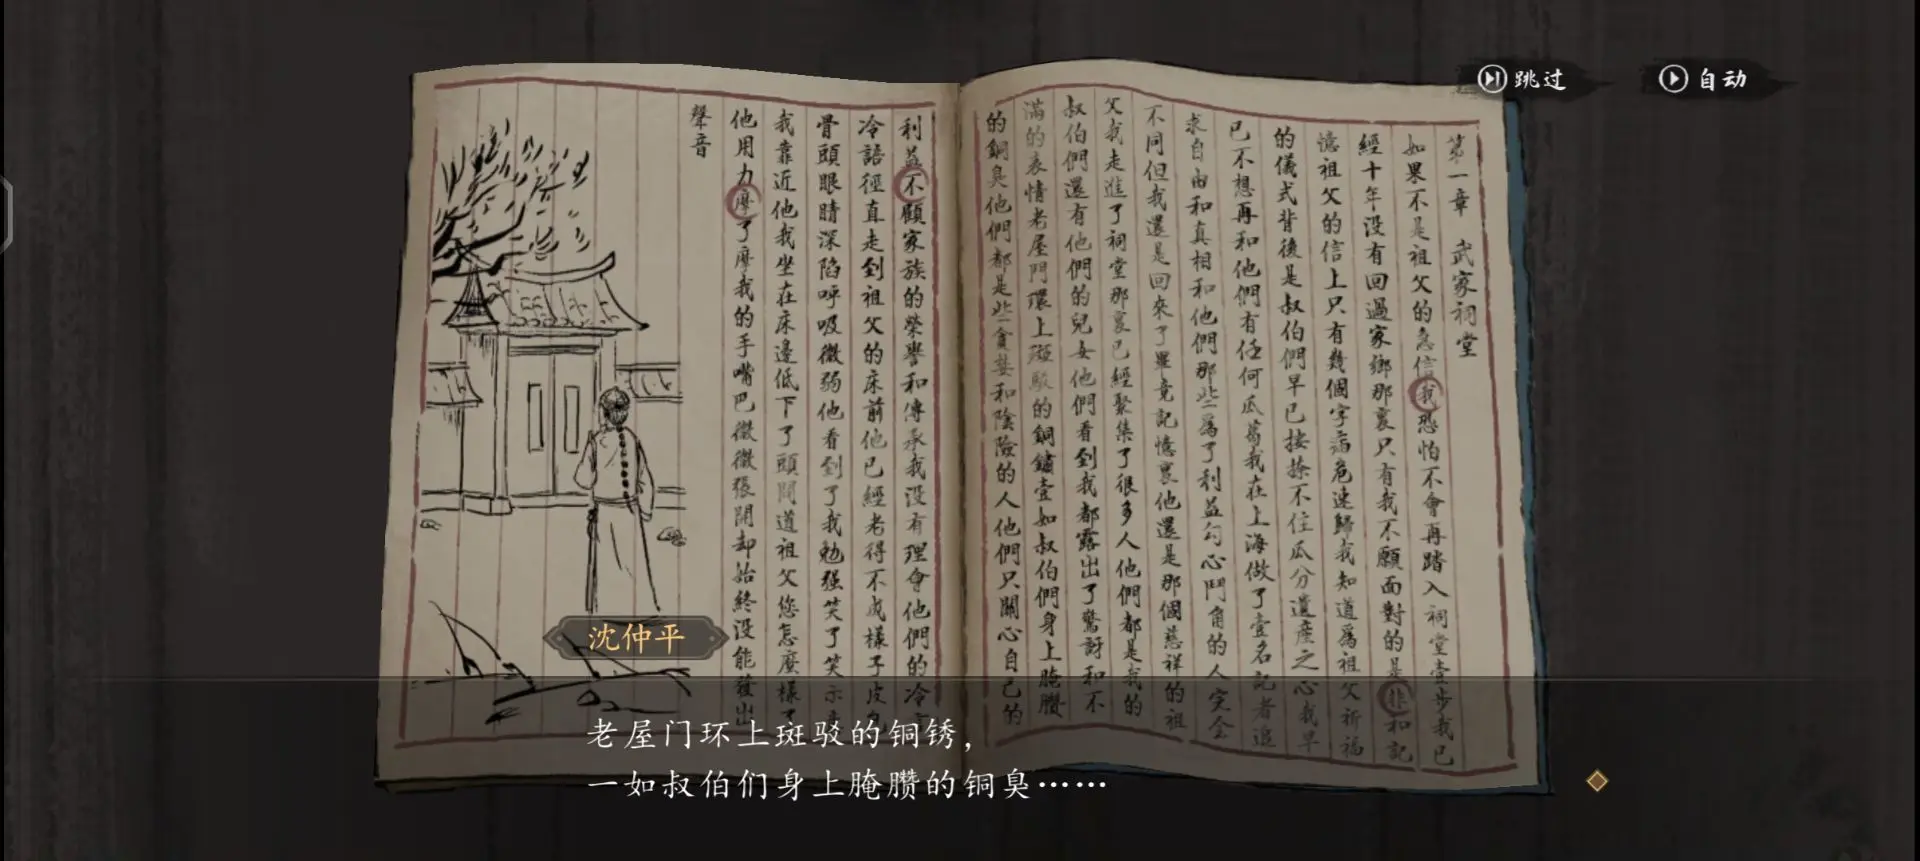 跳过
自动
第一章 武家祠堂
如果不是祖父的急信我恐怕不會再踏入祠堂壹步我已
經十年没有回過家鄉那裏只有我不願面對的是非和記
憶祖父的信上只有幾個字病危速歸我知道爲祖父祈福
的儀式背後是叔伯們早已按捺不住瓜分遺產之心我早
已不想再和他們有任何瓜葛我在上海做了壹名記者追
求自由和真相和他們那些爲了利益勾心鬥角的人完全
不同但我還是回來了畢竟記憶裏他還是那個慈祥的祖
父我走進了祠堂那裏已經聚集了很多人他們都是我的
叔伯們還有他們的兒女他們看到我都露出了驚訝和不
滿的表情老屋門環上斑駁的銅鏽壹如叔伯們身上腌臢
的銅臭他們都是些貪婪和陰險的人他們只關心自己的
利益不顧家族的榮譽和傳承我没有理會他們的冷
冷語徑直走到祖父的床前他已經老得不成樣子皮包
骨頭眼睛深陷呼吸微弱他看到了我勉强笑了笑示意
我靠近他我坐在床邊低下了頭問道祖父您怎麽樣了
他用力摩了摩我的手嘴巴微微張開却始終没能發出
聲音
沈仲平
老屋门环上斑驳的铜锈，
一如叔伯们身上腌臜的铜臭……